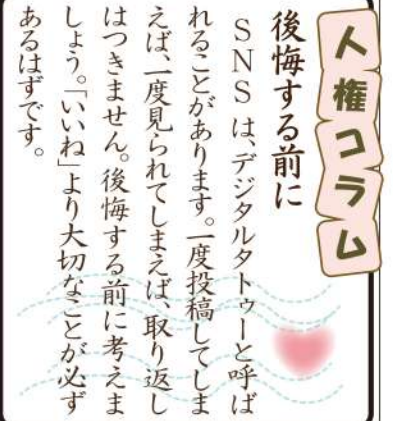 人権コラム
後悔する前に
SNSは、デジタルタトゥーと呼ば
れることがあります。一度投稿してしま
えば、一度見られてしまえば、取り返し
はつきません。後悔する前に考えま
しょう。「いいね」より大切なことが必ず
あるはずです。